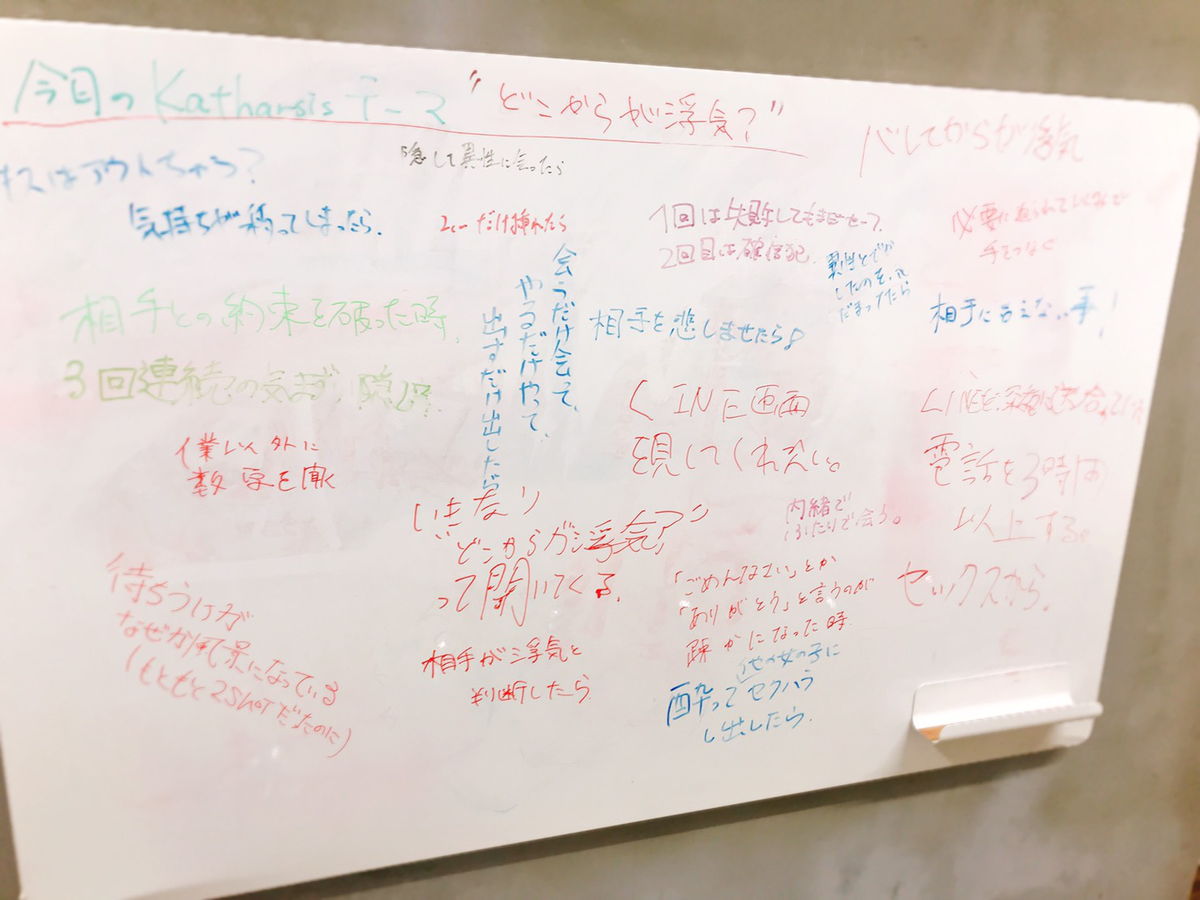 今日の Katharsis テーマ "どこからが浮気?"
バレてからが浮気
キスはアウトちゃう?
隠して異性に会ったら
気持ちが移ってしまったら.
だけ挿れたら
1回は失敗してもまだセーフ.
2回目は確信犯.
必要に迫られていないのに
手をつなぐ
会うだけ会って、
やるだけやって、
出すだけ出したら
異性とでが
したのを、
だまってたら
相手との約束を破った時.
相手を悲しませたら
相手に言えない事!
3回連続の
LINE画面
見してくれない。
業以外に
数字を
LINEを
電話を3時間
以上する。
いきなり
"どこからが浮気?"
って聞いてくる.
内緒で
ふたりで会う。
待ちうけが
なぜか風景になっている
(もともと2SHOTだったのに)
「ごめんなさい」とか
「ありがとう」と言うのが
疎かになった時
セックスから.
相手が浮気と
判断したら
他の女の子に
酔ってセクハラ
し出したら.